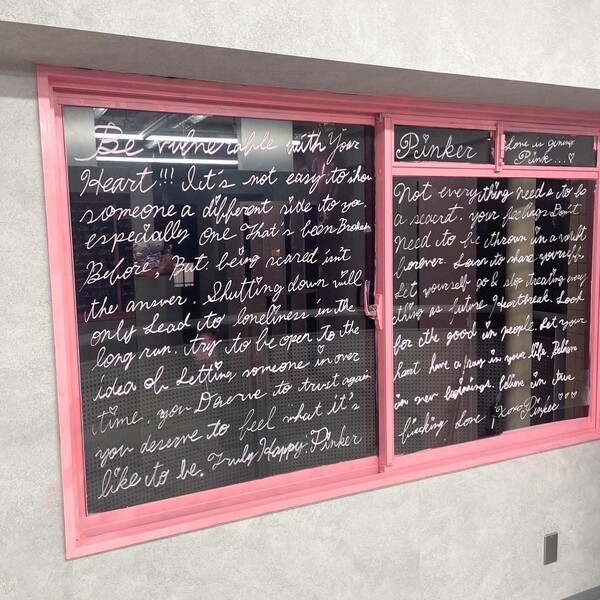 Be vulnerable with your
Heart!!! It's not easy to show
someone a different side to you.
especially one That's been Broken
Before. But. being scared isn't
the answer. Shutting down will
only Lead to loneliness in the
long run. try to be open To the
idea of Letting someone in over
time. you Deserve to trust again
you deserve to feel what it's
like to be. Truly Happy. Pinker
Pinker
Love is giving
Pink...♡
Not everything needs to be
a secret. your feelings Don't
need to be thrown in a vault
forever. Learn to share yourself.
Let yourself go & stop treating every
thing as future Heartbreak. Look
for the good in people. Let your
heart have a in your life. Believe
in new beginnings. Believe in true
fucking Love. Pinker ♡♡♡